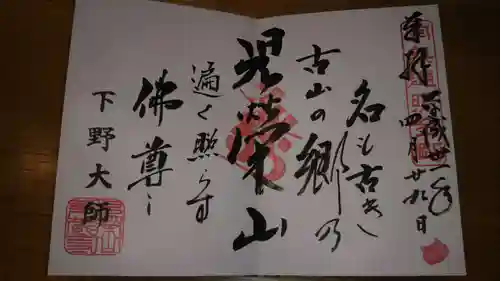 奉拝
平成卅一年
四月廿九日
名も古き
古山の郷の
児栄山
遍く照らす
佛尊し
下野大師